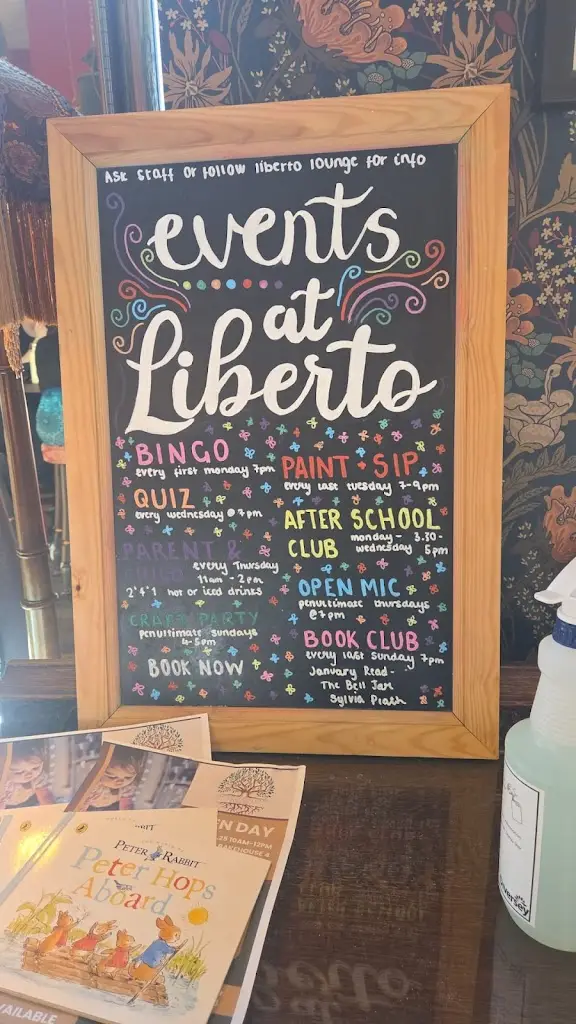 ASK staff or follow liberto lounge for info
events
at
Liberto
BINGO
every first monday 7pm
QUIZ
every wednesday @ 7pm
PARENT &
every Thursday
11am - 2pm
2 4 1 hot or iced drinks
CRAFT PARTY
penultimate sundays
4-5pm
BOOK NOW
PAINT + SIP
every last tuesday 7-9pm
AFTER SCHOOL
CLUB
monday - 3.30-
wednesday 5pm
OPEN MIC
penultimate thursdays
@7pm
BOOK CLUB
every last sunday 7pm
January Read-
The Bell Jar
Sylvia Plath
EN DAY
10AM-12PM
PETER RABBIT
Peter Hops
Aboard
AVAILABLE